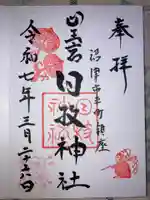 奉拝
沼津市平町鎮座
日枝神社
令和七年三月二十六日